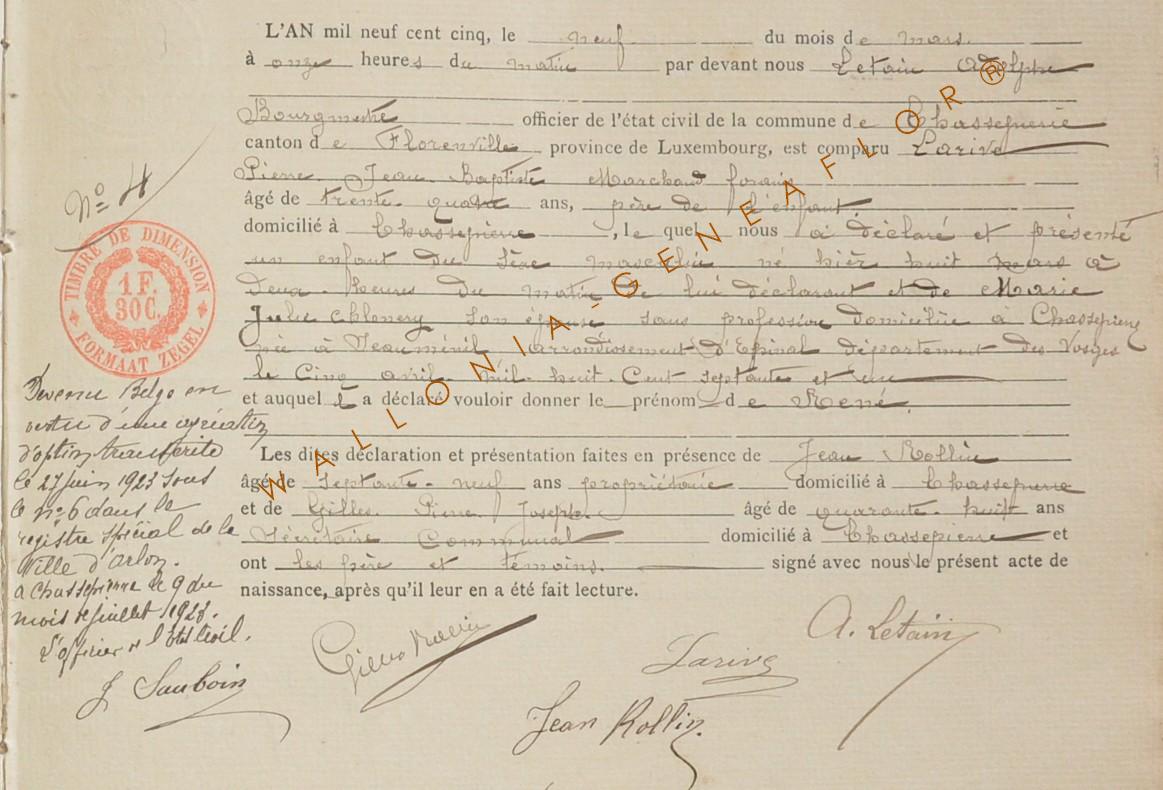 L'AN mil neuf cent cinq, le neuf du mois de mars.
à onze heures du matin par devant nous Letain Adolphe
Bourgmestre officier de l'état civil de la commune de Chassepierre
canton de Florenville province de Luxembourg, est comparu Larive
Pierre Jean Baptiste Marchand forain
âgé de trente quatre ans, père de l'enfant.
domicilié à Chassepierre, le quel nous a déclaré et présenté
un enfant du sexe masculin né hier huit mars à
Deux heures du matin de lui déclarant et de Marie
Julie son épouse sans profession domiciliée à Chassepierre
née à Jeauménil arrondissement d'Epinal département des Vosges
le Cinq avril mil huit Cent septante et un
et auquel il a déclaré vouloir donner le prénom de René.
Les dites déclaration et présentation faites en présence de Jean Rollin
âgé de septante neuf ans propriétaire domicilié à Chassepierre
et de Gilles Pierre Joseph âgé de quarante huit ans
Secrétaire Communal domicilié à Chassepierre et
ont les père et témoins. signé avec nous le présent acte de
naissance, après qu'il leur en a été fait lecture.
N° 4
TIMBRE DE DIMENSION
1 F.
30 C.
FORMAAT ZEGEL
Devenu Belge en
vertu d'une
d'option transcrite
le 27 juin 1923 sous
le n° 6 dans le
registre spécial de la
Ville d'Arlon.
à Chassepierre le 9 du
mois de juillet 1923.
L'officier de l'Etat Civil.
J Sauboin
A. Letain
Larive
Jean Rollin.
WALLONIA-GENEAFLOR®